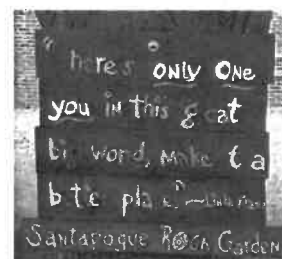 "There's ONLY ONE
you in this great
big world, make t a
b te place." ~
Santapogue Rock Garden